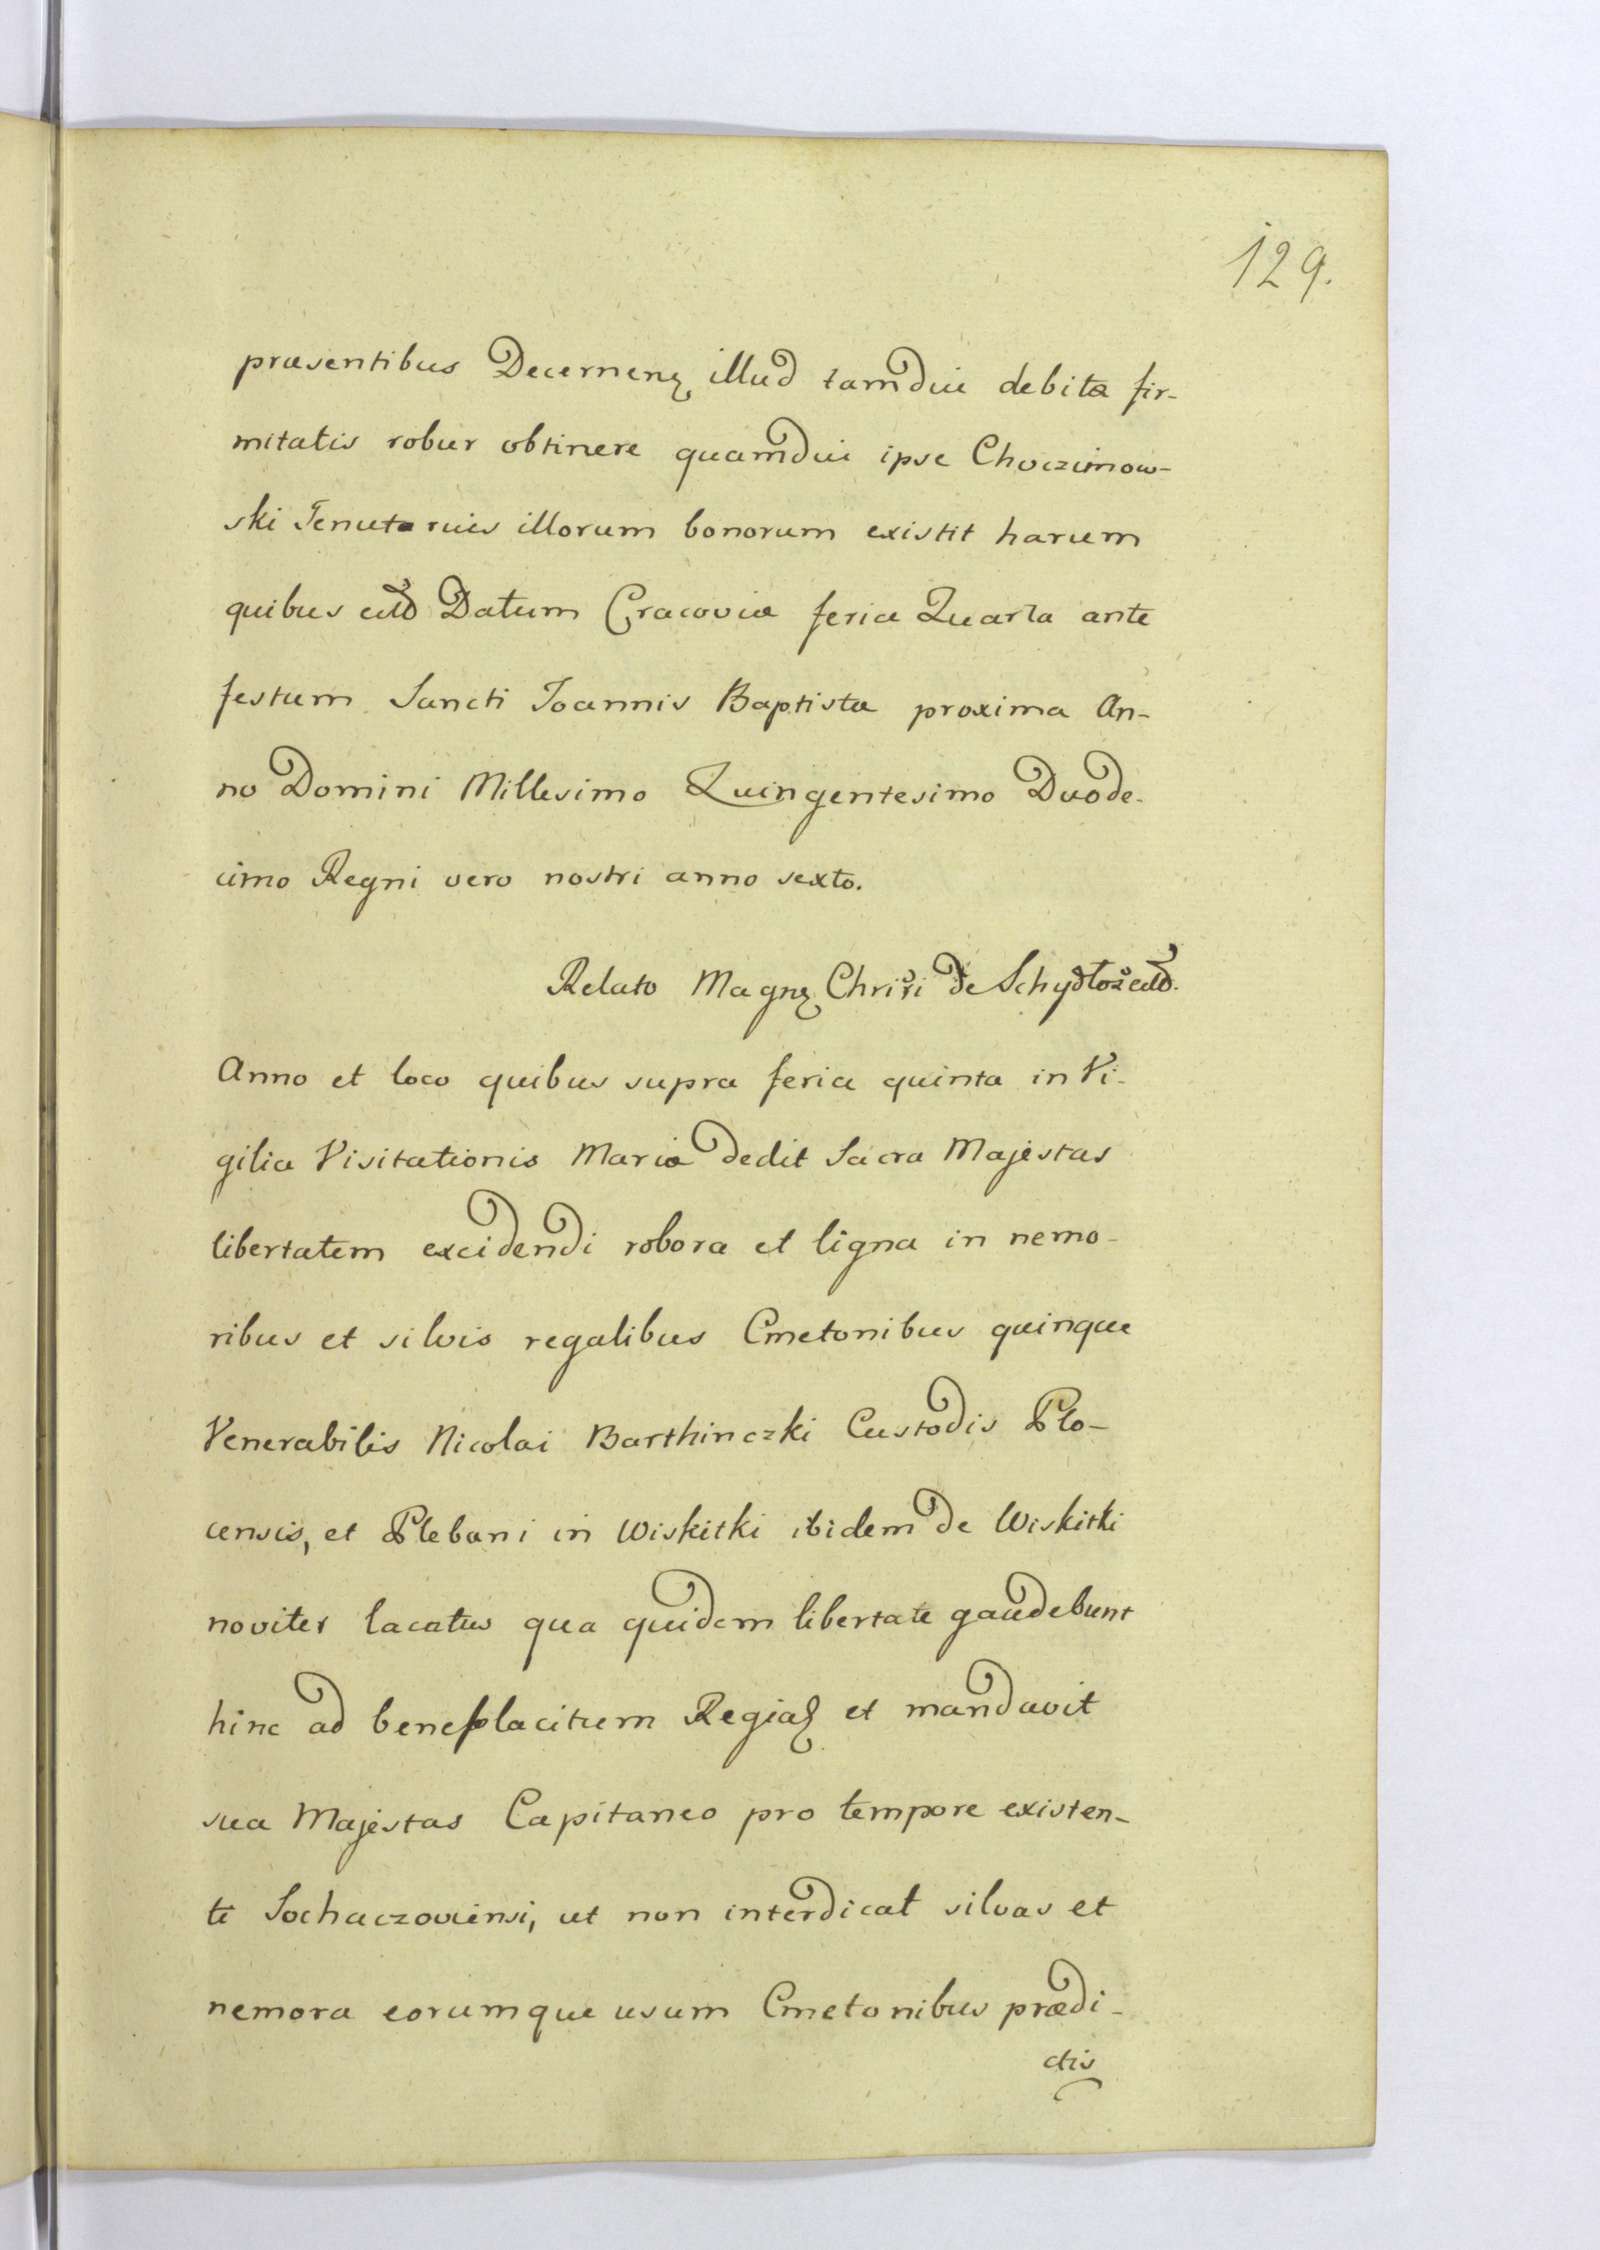 129.
præsentibus Decernen illud tamdiu debitæ fir-
mitatis robur obtinere quamdiu ipse Choczimow-
ski Tenutarius illorum bonorum existit harum
quibus Datum Cracoviæ feria Quarta ante
festum Sancti Joannis Baptistæ proxima An-
no Domini Millesimo Quingentesimo Duode-
cimo Regni vero nostri anno sexto.
Relato Magn Chrisi de Schydłoż
Anno et loco quibus supra feria quinta in Vi-
gilia Visitationis Mariæ dedit Sacra Majestas
libertatem excidendi robora et ligna in nemo-
ribus et silvis regalibus Cmetonibus quinque
Venerabilis Nicolai Barthinczki Custodis Plo-
censis, et Plebani in Wiskitki ibidem de Wiskitki
noviter lacatus qua quidem libertate gaudebunt
hinc ad beneplacitum Regia et mandavit
sua Majestas Capitaneo pro tempore existen-
te Sochaczoviensi, ut non interdicat silvas et
nemora eorumque usum Cmetonibus prædi-
ctis